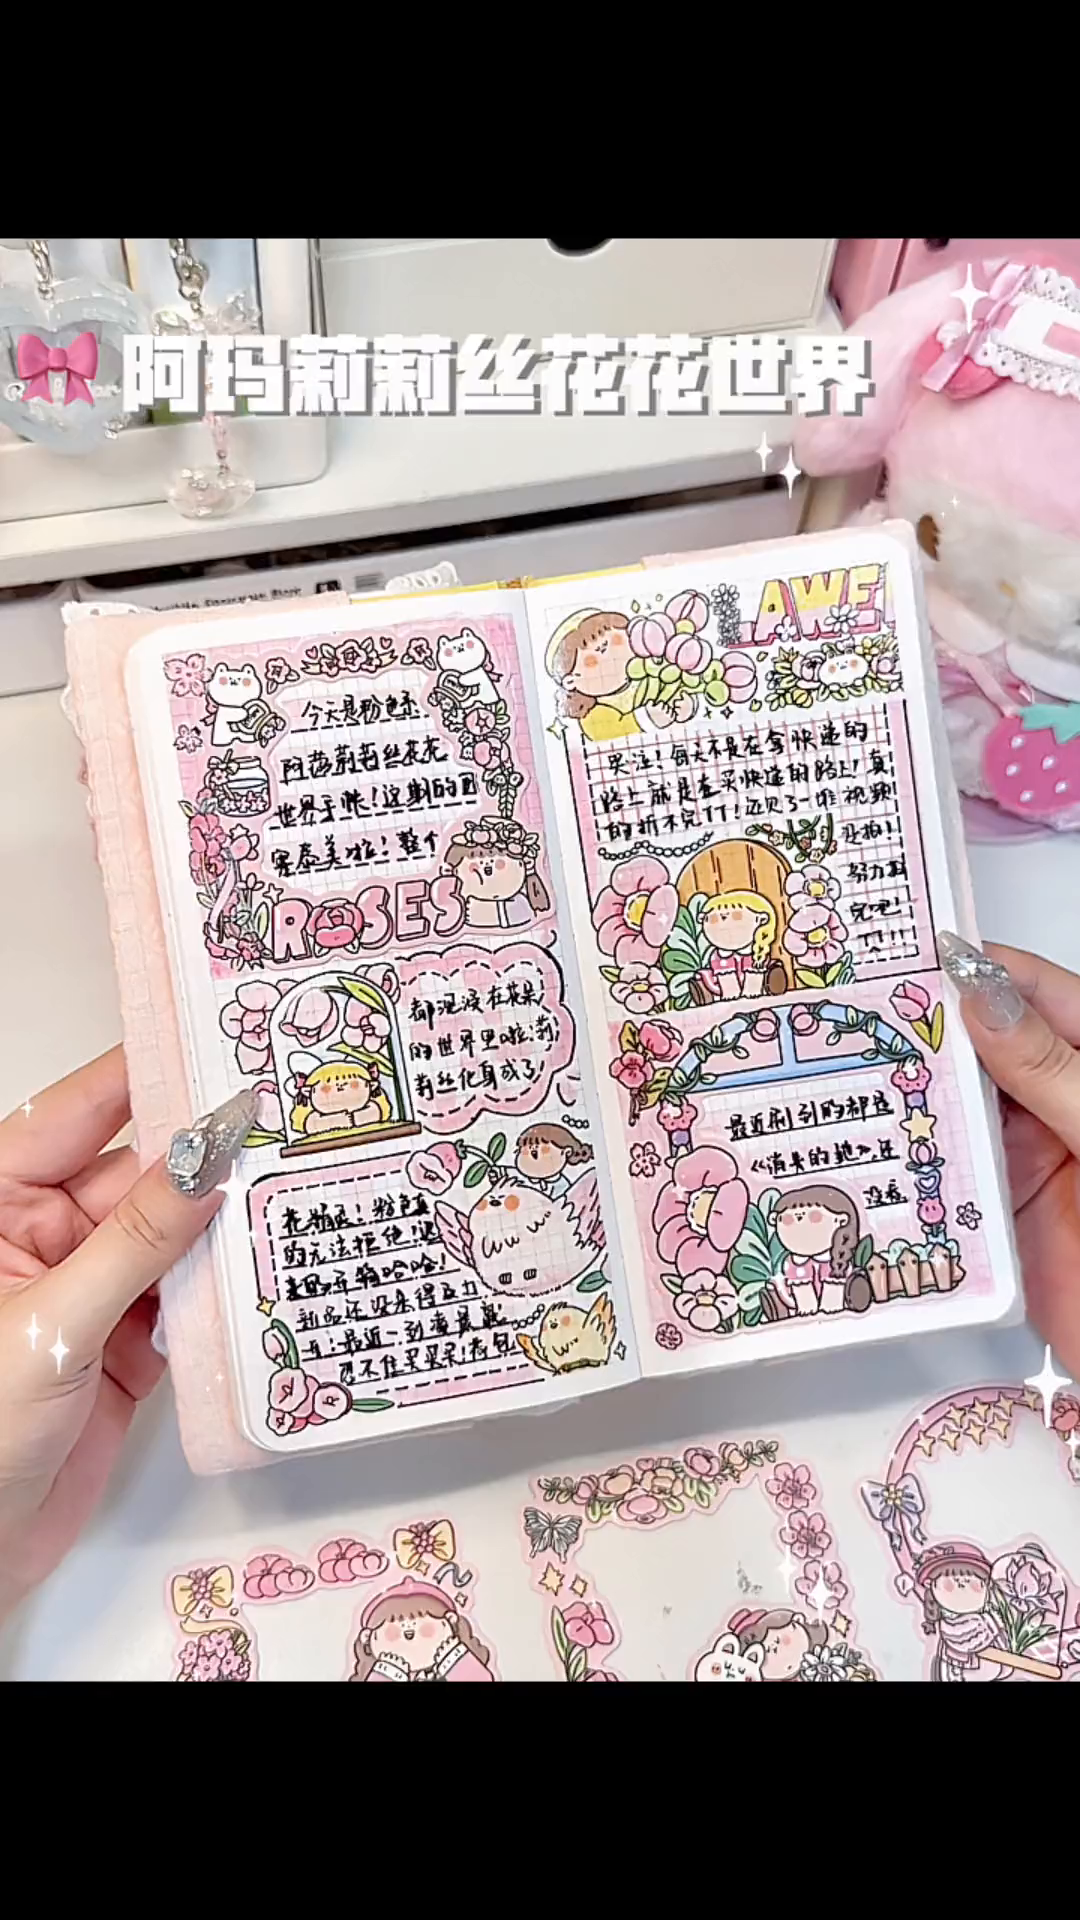 阿玛莉莉丝花花世界
今天是粉色系
阿莎莉莉丝花花
世界手帐！这期的图
案太美啦！整个
ROSES
都沉浸在花朵
的世界里啦，莉
莉丝化身成了
花仙子！粉色真
的无法拒绝！
哈哈！
新品还没来得及
最近一到凌晨就
忍不住买买买！荷包
LAWE
哭泣！每天不是在拿快递的
路上就是在买快递的路上！真
的拆不完TT！还见了一堆视频
没拍！
努力
完吧！
TT！！
最近刷到的都是
《消失的她》，还
没看